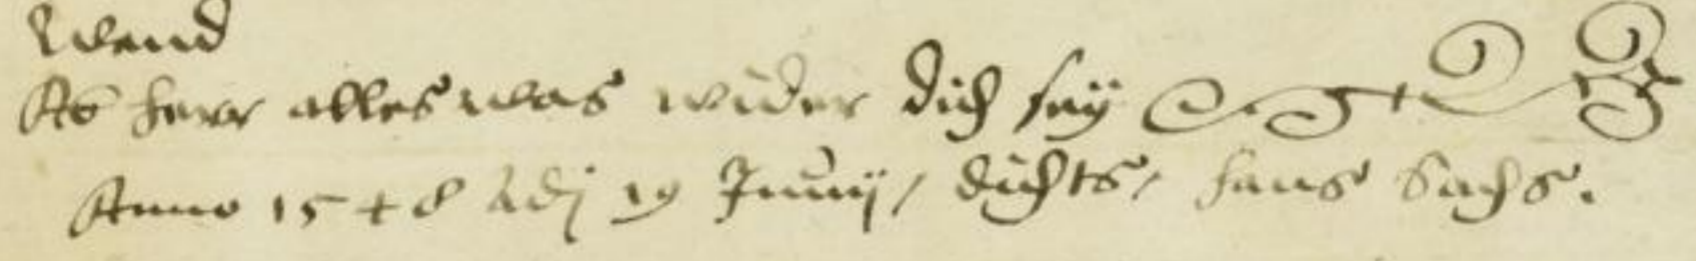 Wend
Ab herr alles was wider dich sey
Anno 1548 Adj 19 Junij / dichts / hans Sachs.